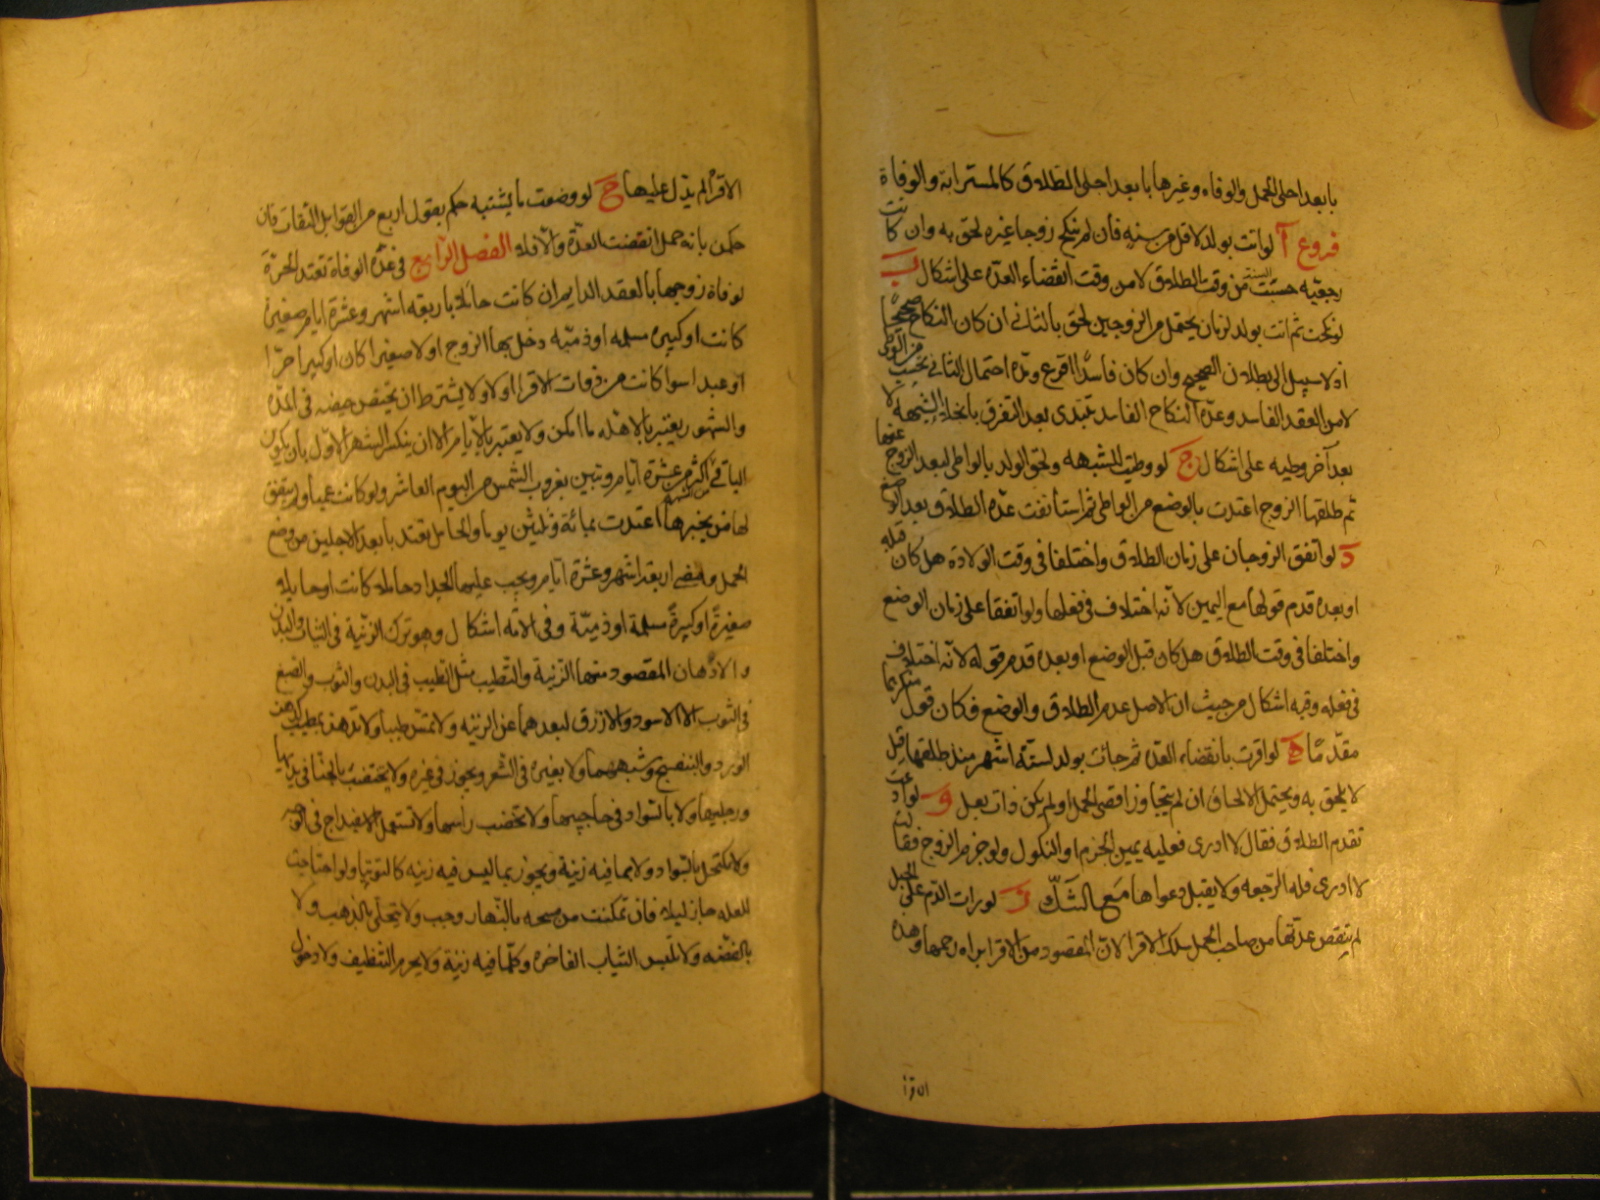 بابعد اجلى الحمل والوفاه وغيرها بابعد اجلى الطلاق كالمسترابة والوفاة
فروع آ لو اتت بولد لاقل من سنه فان لم تنكح زوجا غيره لحق به وان كانت
رجعيّه حسبت السنة من وقت الطلاق لا من وقت انقضاء العدّه على اشكال ب
لو نكحت ثم اتت بولد لزمان يحتمل من الزوجين لحق بالثانى ان كان النكاح صحيحًا
اذ لا سبيل الى بطلان الصحيح وان كان فاسدًا اقرع ومدّه احتمال الثانى تحسب من الوطى
لا من العقد الفاسد وعدّه النكاح الفاسد تبتدى بعد التفرق بانجلاء الشبهه لا
بعد آخر وطيه على اشكال ج لو وطيت للشبهه ولحق الولد بالواطى لبعد الزوج عنها
ثم طلقها الزوج اعتدت بالوضع من الواطى ثم استأنفت عدّه الطلاق بعد الوضع
د لو اتفق الزوجان على زمان الطلاق واختلفا فى وقت الولادة هل كان قبله
او بعده قدم قولها مع اليمين لانه اختلاف فى فعلها ولو اتفقا على زمان الوضع
واختلفا فى وقت الطلاق هل كان قبل الوضع او بعده قدم قوله لانّه اختلاف
فى فعله وفيه اشكال من حيث ان الاصل عدم الطلاق والوضع فكان قول منكرهما
مقدّمًا ه لو اقرت بانقضاء العدّه ثم جائت بولد لستّه اشهر منذ طلقها قيل
لا يلحق به ويحتمل الالحاق ان لم يتجاوز اقصى الحمل او لم يكن ذات بعل و لو ادعت
تقدم الطلاق فقال لا ادرى فعليه يمين الجزم او النكول ولو جزم الزوج فقالت
لا ادرى فله الرجعه ولا يقبل دعواها مع الشكّ ز لو رات الدّم على الحبل
لم تنقض عدتها من صاحب الحمل بتلك الاقرا لان المقصود من الاقرا براه رحمها وهذه
الاقرا
الاقرا لم يدل عليها ح لو وضعت ما يشتبه حكم بقول اربع من القوابل الثقات فان
حكمن بانه حمل انقضت العدّة والّا فلا الفصل الرابع فى عدّه الوفاة تعتد الحرّة
لوفاة زوجها بالعقد الدايم ان كانت حائلا باربعة اشهر وعشرة ايام صغيرة
كانت او كبيره مسلمه او ذميّه دخل بها الزوج او لا صغيرا كان او كبيرا حرّا
او عبدا سوا كانت من ذوات الاقرا او لا ولا يشترط ان تحيض حيضه فى المدّه
والشهور يعتبر بالاهله ما امكن ولا يعتبر بالايام الا ان ينكسر الشهر الاول بان يكون
الباقى اكثر من عشرة ايام وتبين بغروب الشمس من اليوم العاشر ولو كانت عمياء ولم يتفق
لها من يخبرها اعتدت بمائة وثلثين يوما والحامل تعتد بابعد الاجلين من وضع
الحمل ومضى اربعة اشهر وعشرة ايام ويجب عليها الحداد حائله كانت او حاملا
صغيرةً او كبيرةً مسلمة او ذميّة وفى الامه اشكال وهو ترك الزينة فى الثياب والبدن
والادهان المقصود منها الزينة والتطيب مثل الطيب فى البدن والثوب والصبغ
فى الثوب الا الاسود والازرق لبعدهما عن الزينه ولا تمسّ طيبا ولا تدهن بمطيب كدهن
الورد والبنفسج وشبههما ولا بغيره فى الشعر ويجوز فى غيره ولا تختضب بالحنّا فى يديها
ورجليها ولا بالسّواد فى حاجبيها ولا تخضب رأسها ولا تستعمل الاسفيداج فى الوجه
ولا تكتحل بالسّواد ولا بما فيه زينة ويجوز بما ليس فيه زينه كالتوتيا ولو احتاجت
للعله جاز ليلا فان تمكنت من مسحه بالنّهار وجب ولا تتحلّى بالذهب ولا
بالفضّه ولا تلبس الثياب الفاخره وكلما فيه زينة ولا يحرم التنظيف ولا دخول